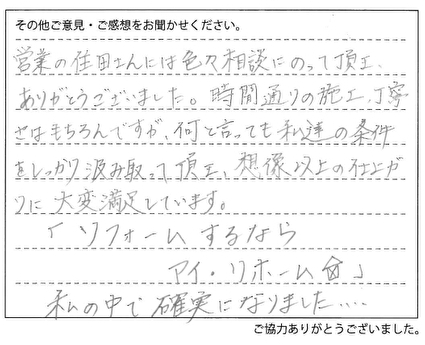 その他ご意見・ご感想をお聞かせください。
営業の住田さんには色々相談にのって頂き、
ありがとうございました。時間通りの施工、丁寧
さはもちろんですが、何と言っても私達の条件
をしっかり汲み取って頂き、想像以上の仕上が
りに大変満足しています。
「リフォームするなら
アイ・リホーム🏠」
私の中で確実になりました....
ご協力ありがとうございました。